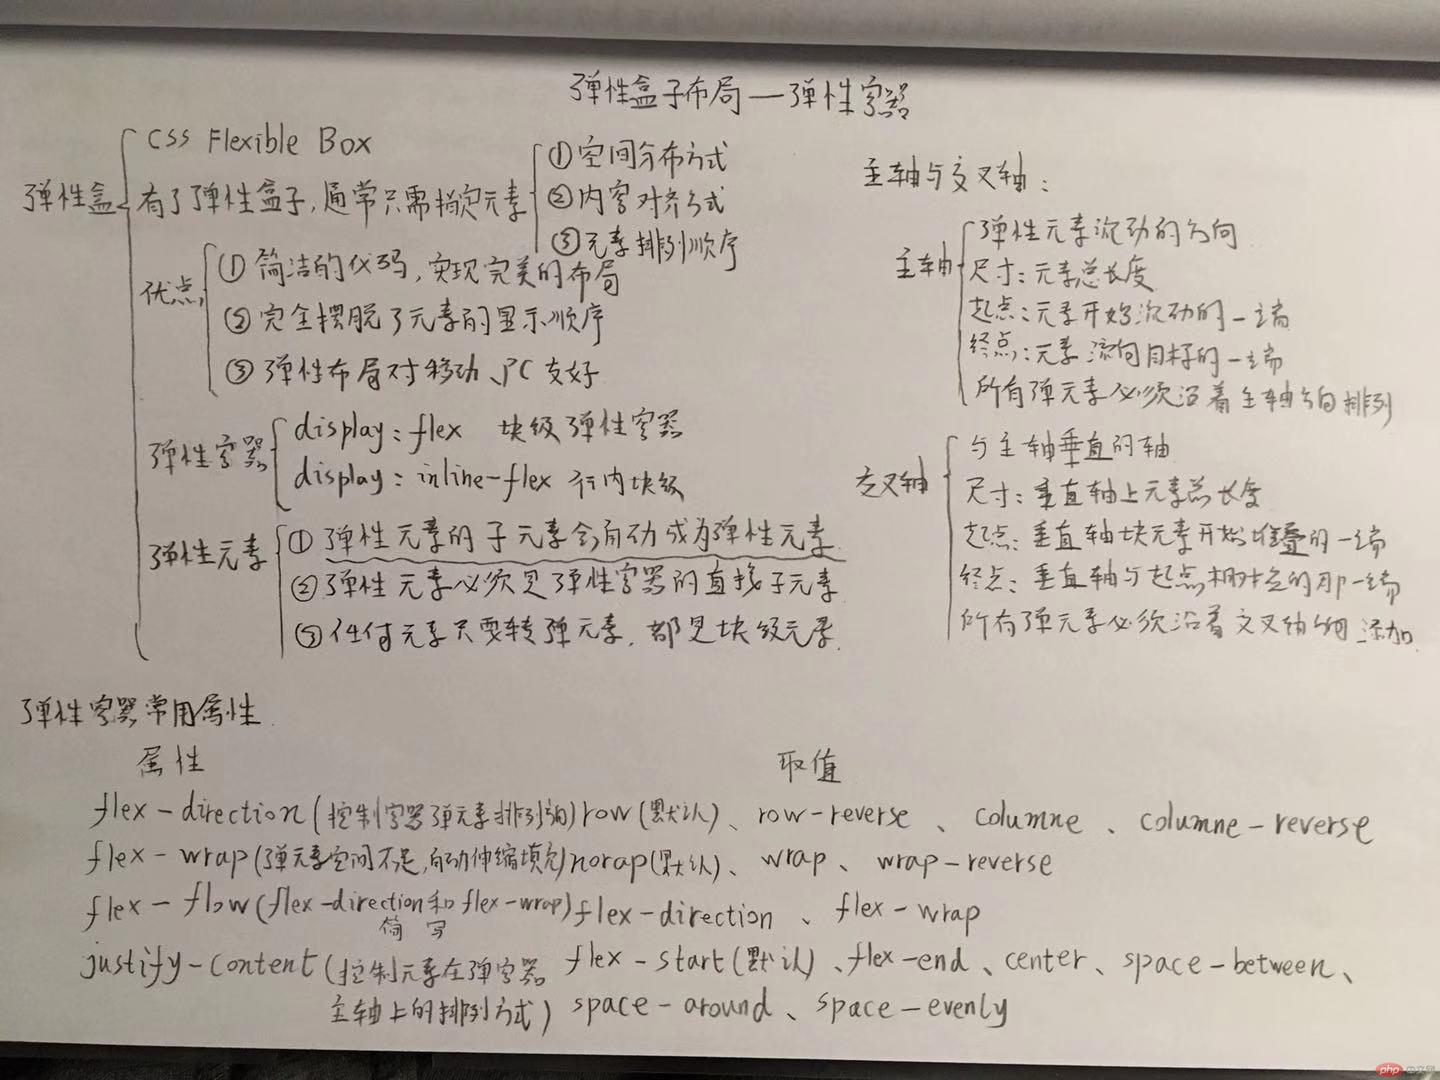 弹性盒子布局—弹性容器
弹性盒
CSS Flexible Box
有了弹性盒子,通常只需指定元素
①空间分布方式
②内容对齐方式
③元素排列顺序
优点
①简洁的代码,实现完美的布局
②完全摆脱了元素的显示顺序
③弹性布局对移动、PC友好
弹性容器
display:flex 块级弹性容器
display:inline-flex 行内块级
弹性元素
①弹性元素的子元素会自动成为弹性元素
②弹性元素必须是弹性容器的直接子元素
③任何元素只要转弹元素,都是块级元素
主轴与交叉轴:
主轴
弹性元素流动的方向
尺寸:元素总长度
起点:元素开始流动的一端
终点:元素流向目标的一端
所有弹元素必须沿着主轴方向排列
交叉轴
与主轴垂直的轴
尺寸:垂直轴上元素总长度
起点:垂直轴块元素开始堆叠的一端
终点:垂直轴与起点相对应的那一端
所有弹元素必须沿着交叉轴方向添加
弹性容器常用属性
属性 取值
flex-direction(控制容器弹元素排列方向)row(默认)、row-reverse、columne、columne-reverse
flex-wrap(弹元素空间不足,自动伸缩填充)norap(默认)、wrap、wrap-reverse
flex-flow(flex-direction和flex-wrap)flex-direction、flex-wrap
简写
justify-content(控制元素在弹容器 flex-start(默认)、flex-end、center、space-between、
主轴上的排列方式)space-around、space-evenly
php